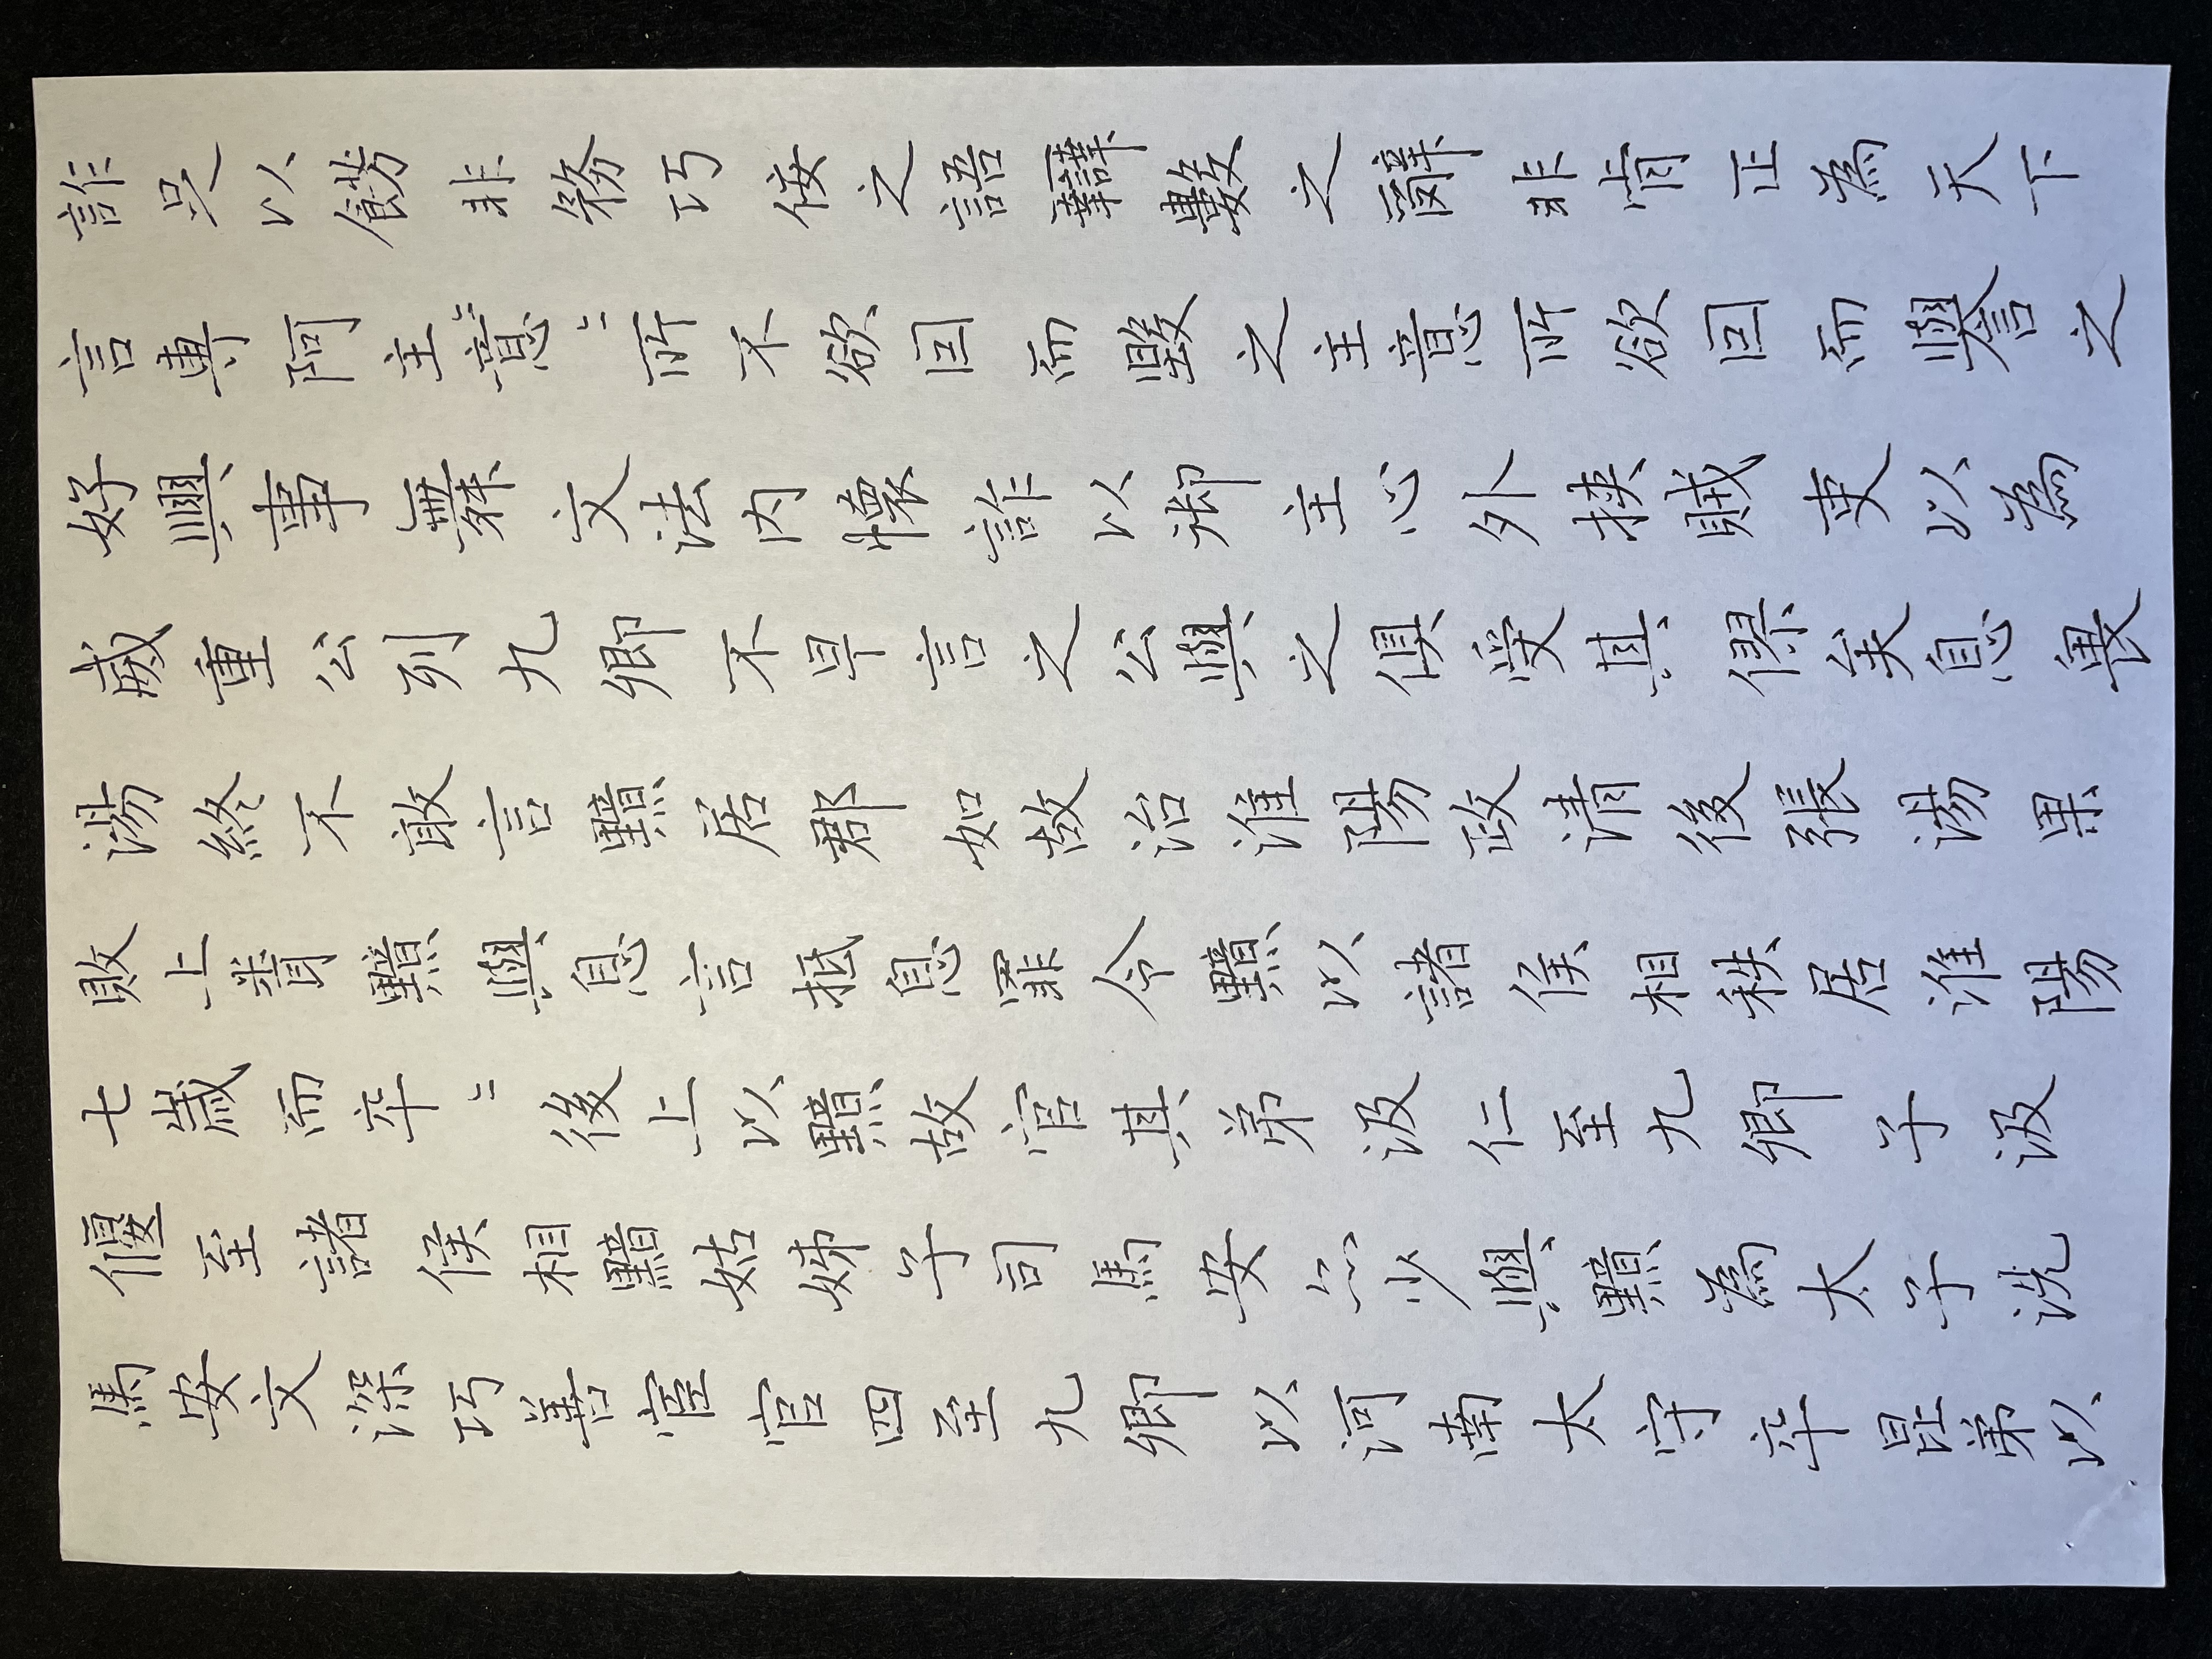 詐足以餝非務巧佞之語辯數之辭非肯正為天下
言專阿主意〻〻所不欲因而毀之主意所欲因而譽之
好興事舞文法內懷詐以御主心外挾賊吏以為
威重公列九卿不早言之公與之俱受其僇矣息畏
湯終不敢言黯居郡如故治淮陽政清後張湯果
敗上聞黯與息言抵息罪令黯以諸侯相秩居淮陽
七歲而卒〻後上以黯故官其弟汲仁至九卿子汲
偃至諸侯相黯姑姊子司馬安亦少與黯為太子洗
馬安文深巧善宦官四至九卿以河南太守卒昆弟以